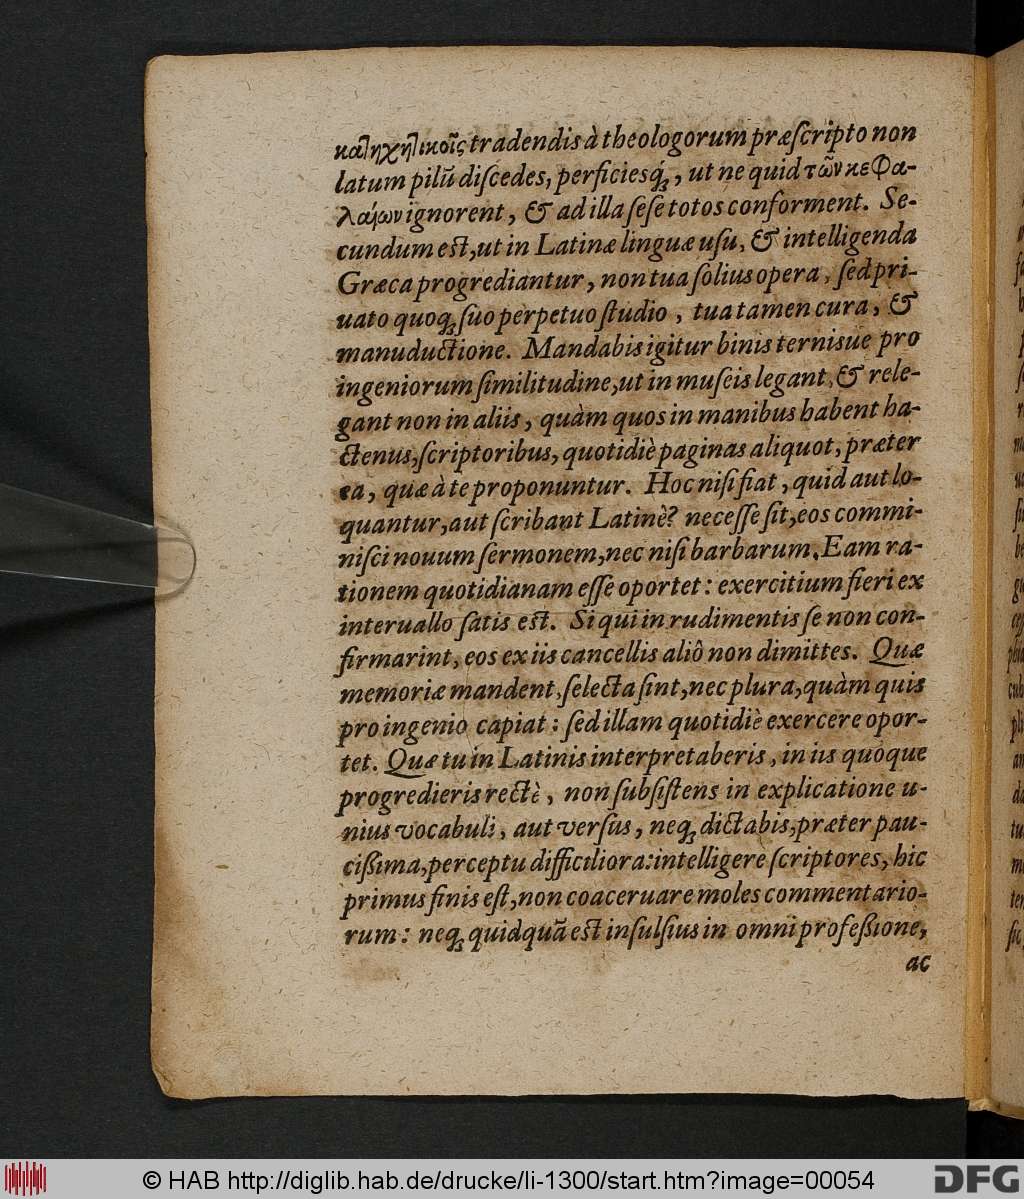 κατηχητικοῖς tradendis à theologorum præſcripto non
latum pilũ diſcedes, perficieſq́;, ut ne quid τῶν κεφα-
λαίων ignorent, & ad illa ſeſe totos conforment. Se-
cundum eſt, ut in Latinæ linguæ uſu, & intelligenda
Græca progrediantur, non tua ſolius opera, ſed pri-
uato quoq; ſuo perpetuo ſtudio, tua tamen cura, &
manuductione. Mandabis igitur binis ternisue pro
ingeniorum ſimilitudine, ut in muſeis legant, & rele-
gant non in aliis, quàm quos in manibus habent ha-
ctenus, ſcriptoribus, quotidiè paginas aliquot, præter
ea, quæ à te proponuntur. Hoc niſi fiat, quid aut lo-
quantur, aut ſcribant Latinè? neceſſe ſit, eos commi-
niſci nouum ſermonem, nec niſi barbarum. Eam ra-
tionem quotidianam eſſe oportet: exercitium fieri ex
interuallo ſatis eſt. Si qui in rudimentis ſe non con-
firmarint, eos ex iis cancellis aliô non dimittes. Quæ
memoriæ mandent, ſelecta ſint, nec plura, quàm quis
pro ingenio capiat: ſed illam quotidiè exercere opor-
tet. Quæ tu in Latinis interpretaberis, in iis quoque
progredieris rectè, non ſubſiſtens in explicatione u-
nius vocabuli, aut verſus, neq; dictabis, præter pau-
cißima, perceptu difficiliora: intelligere ſcriptores, hic
primus finis eſt, non coaceruare moles commentario-
rum: neq; quidquã eſt inſulſius in omni profeßione,
ac
© HAB http://diglib.hab.de/drucke/li-1300/start.htm?image=00054
DFG